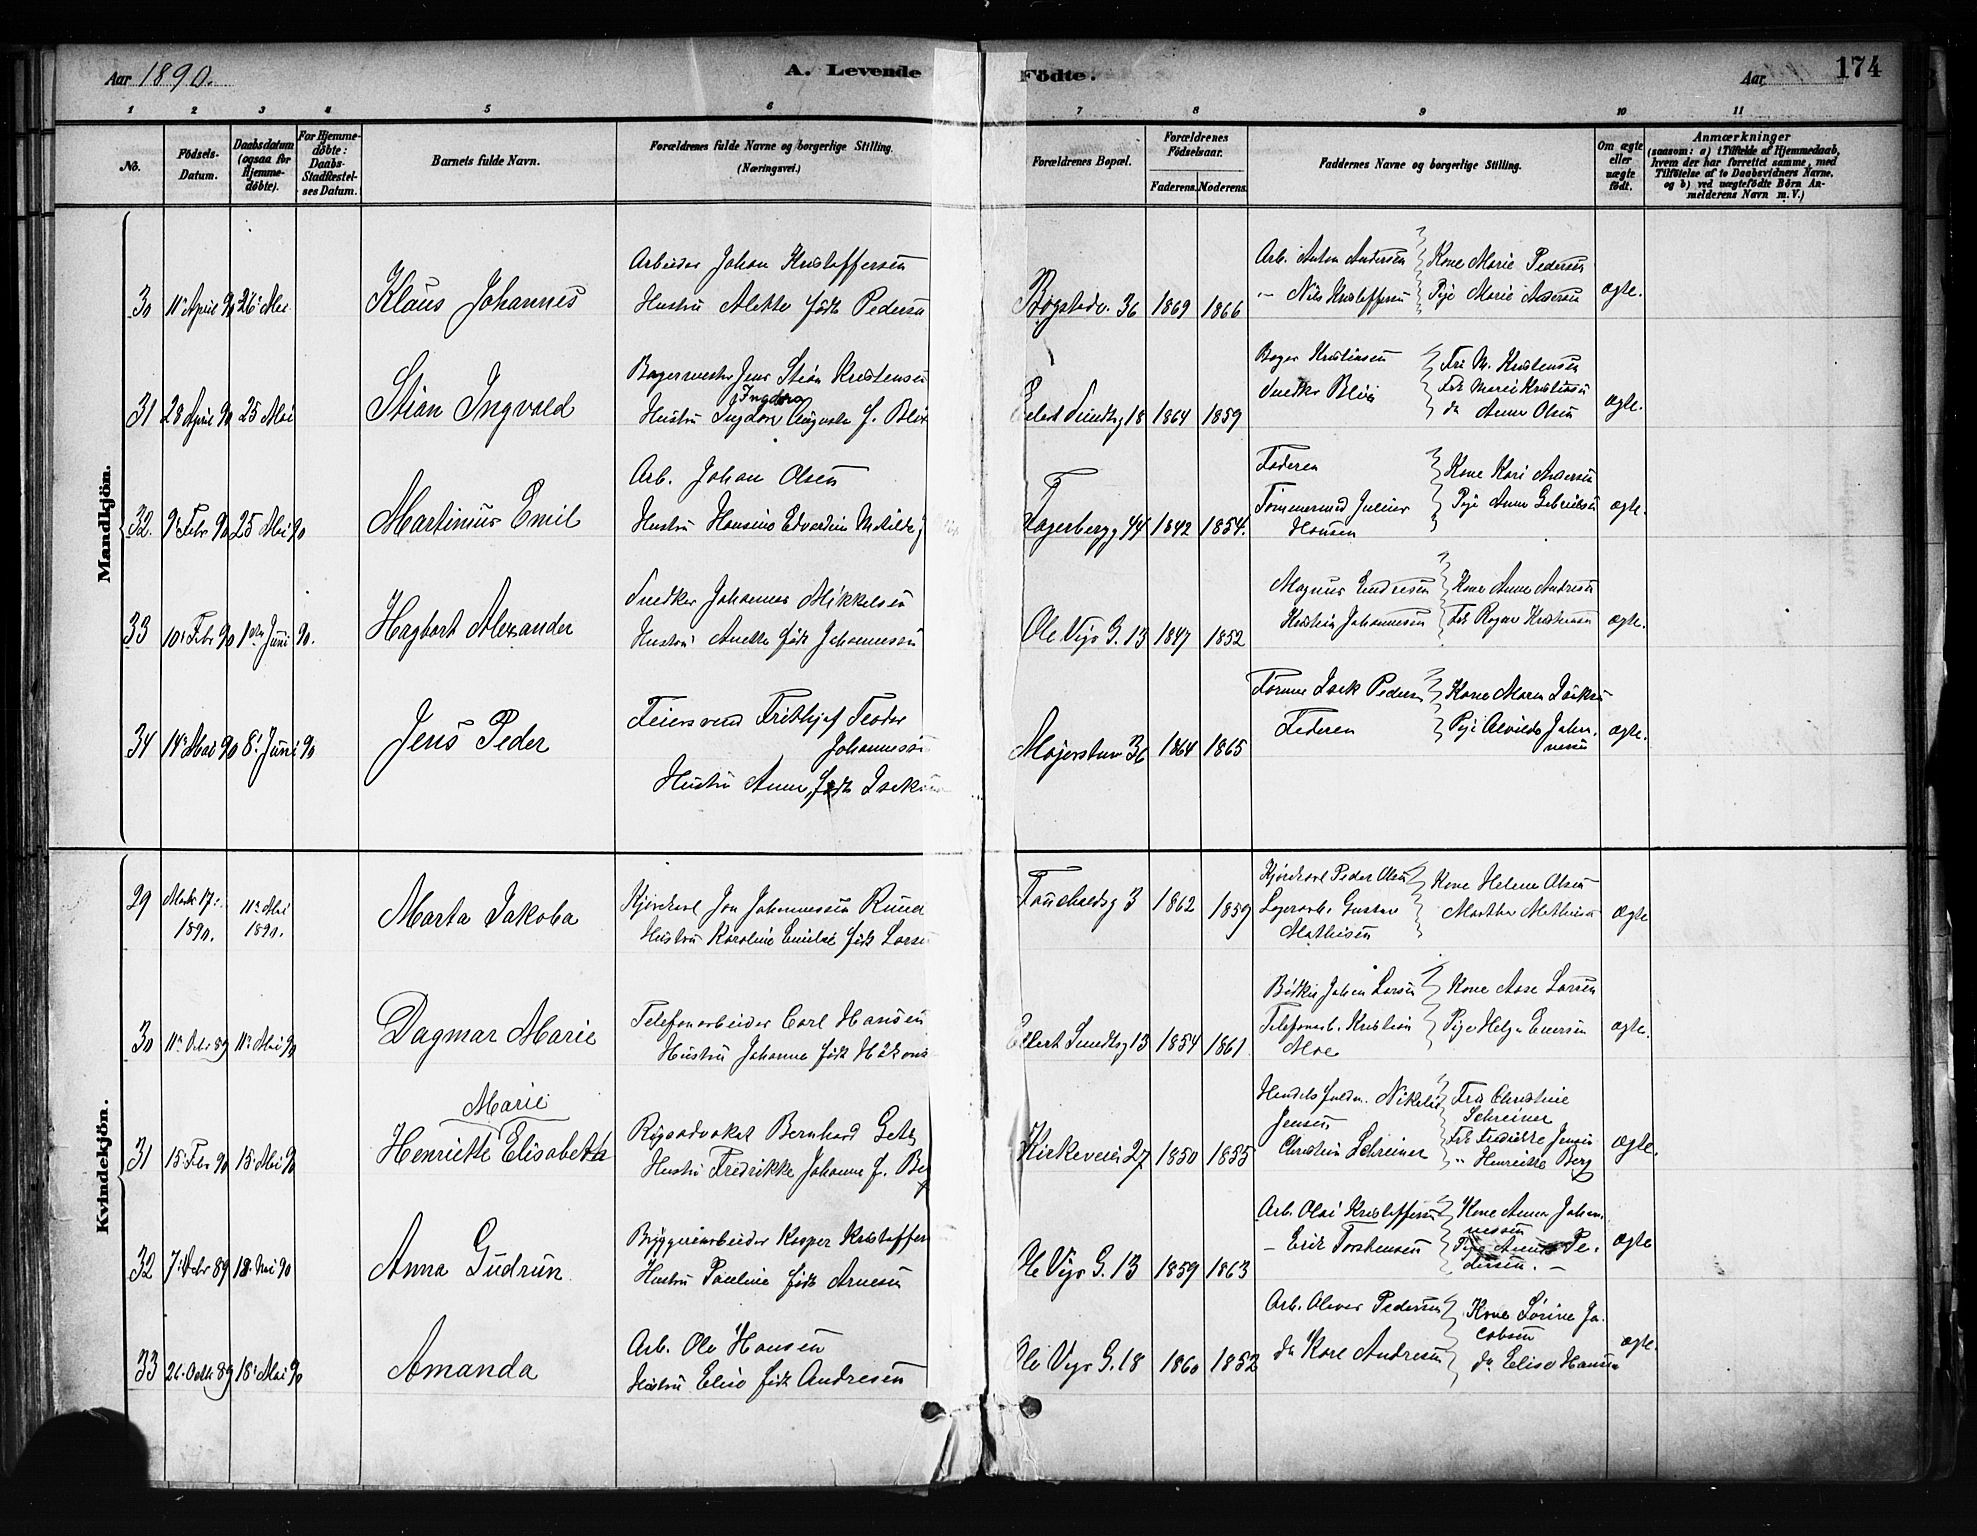 Aar 1890.
A. Levende
Födte.
Aar
174
1 2 3 4 5 6 7 8 9 10 11
No.
Födsels-Datum.
Daabsdatum (ogsaa for Hjemme-döbte).
For Hjemme-döbte: Daabs-Stadfæstel-ses Datum.
Barnets fulde Navn.
Forældrenes fulde Navne og borgerlige Stilling.
(Næringsvei.)
Forældrenes Bopæl.
Forældrenes Födselsaar.
Faderens. Moderens.
Faddernes Navne og borgerlige Stilling.
Om ægte eller uægte födt.
Anmærkninger
(saasom: a) i Tilfælde af Hjemmedaab,
hvem der har forrettet samme, med
Tilföielse af to Daabsvidners Navne.
og b) ved uægtefödte Börn An-
melderens Navn m. V.)
Mandkjön.
30 11 April 90 26 Mai
Klaus Johannes
Arbeider Johan Kristoffersen
Hustru Alette født Pedersen
Bogstadv. 36 1869 1866
Arb. Anton Andersen
" Nils Kristoffersen
Kone Marie Pedersen
Pige Marie Andersen
ægte.
31 28 April 90 25 Mai
Stian Ingvald
Bagermester Jens Stian Kristensen
Ingdora
Hustru Augusta f. Blix
Eilert Sundtsg 18 1864 1859
Bager Kristensen
Snedker Blix
Fru M. Kristensen
Frk Marie Kristensen
do Anna Olsen
ægte.
32. 9 Febr 90 25 Mai 90
Martinius Emil
Arb. Johan Olsen
Hustru Hansine Edvardine Matilde
Fagerbergg 44 1842 1854.
Faderen
Tømmermand Julius
Hansen
Kone Kari Andersen
Pige Anna Gabrielsen
ægte.
33 10 Febr 90 1ste Juni 90.
Hagbart Alexander
Snedker Johannes Mikkelsen
Hustru Anette født Johannessen
Ole Vigs G. 13 1847 1852
Magnus Endresen
Kristian Johannesen
Kone Anne Andresen
Frk Ragna Kristensen
ægte.
34 14 Mai 90 8 Juni 90
Jens Peder
Feiersvend Frithjof Teodor
Johannessen
Hustru Anna, født Isaksen
Majorstuen 36 1864 1865
Isak Pedersen
Faderen
Kone Maren Isaksen
Pige Alvilde Johan-
nesen
ægte.
Kvindekjön.
29 Marts 17 1890. 11 Mai 1890.
Marta Jakoba
Kjørekarl Jon Johannessen Ruud
Hustru Karoline Emilie født Larsen
Fauchaldsg 3 1862 1859
Kjørekarl Peder Olsen
Lagerarb. Gustav
Mathisen
Kone Helene Olsen
Martha Mathisen
ægte
30 11 Octr 89 11 Mai 90
Dagmar Marie
Telefonarbeider Carl Hansen
Hustru Johanne født Håkons
Eilert Sundtsg 13 1854 1861.
Bødker Johan Larsen
Telefonarb. Kristian
Moe
Kone Aase Larsen
Pige Helga Enersen
ægte.
31 15 Febr 90 15 Mai 90
Marie
Henriette Elisabeth
Rigsadvokat Bernhard Getz
Hustru Fredrikke Johanne f. Berg
Kirkeveien 27 1850 1855
Handelsfuldm. Nikolai
Jensen
Christian Schreiner
Fru Christine
Schreiner
Frk Fredrikke Jensen
" Henriette Berg
ægte.
32 7 Octr 89 18 Mai 90
Anna Gudrun
Bryggeriarbeider Kasper Kristoffer
Hustru Pauline født Arnesen
Ole Vigs G. 13 1859 1863
Arb. Olai Kristoffersen
- Erik Torstensen
Kone Anna Johan-
nessen
Pige Anna Pe-
dersen. -
ægte
33 26. Octb 89 18 Mai 90
Amanda
Arb. Ole Hansen
Hustru Elise født Andresen
Ole Vigs G. 18 1860 1852
Arb. Oliver Pedersen
do Karl Andresen
Kone Sørine Ja-
cobsen
do. Elise Hansen
ægte.